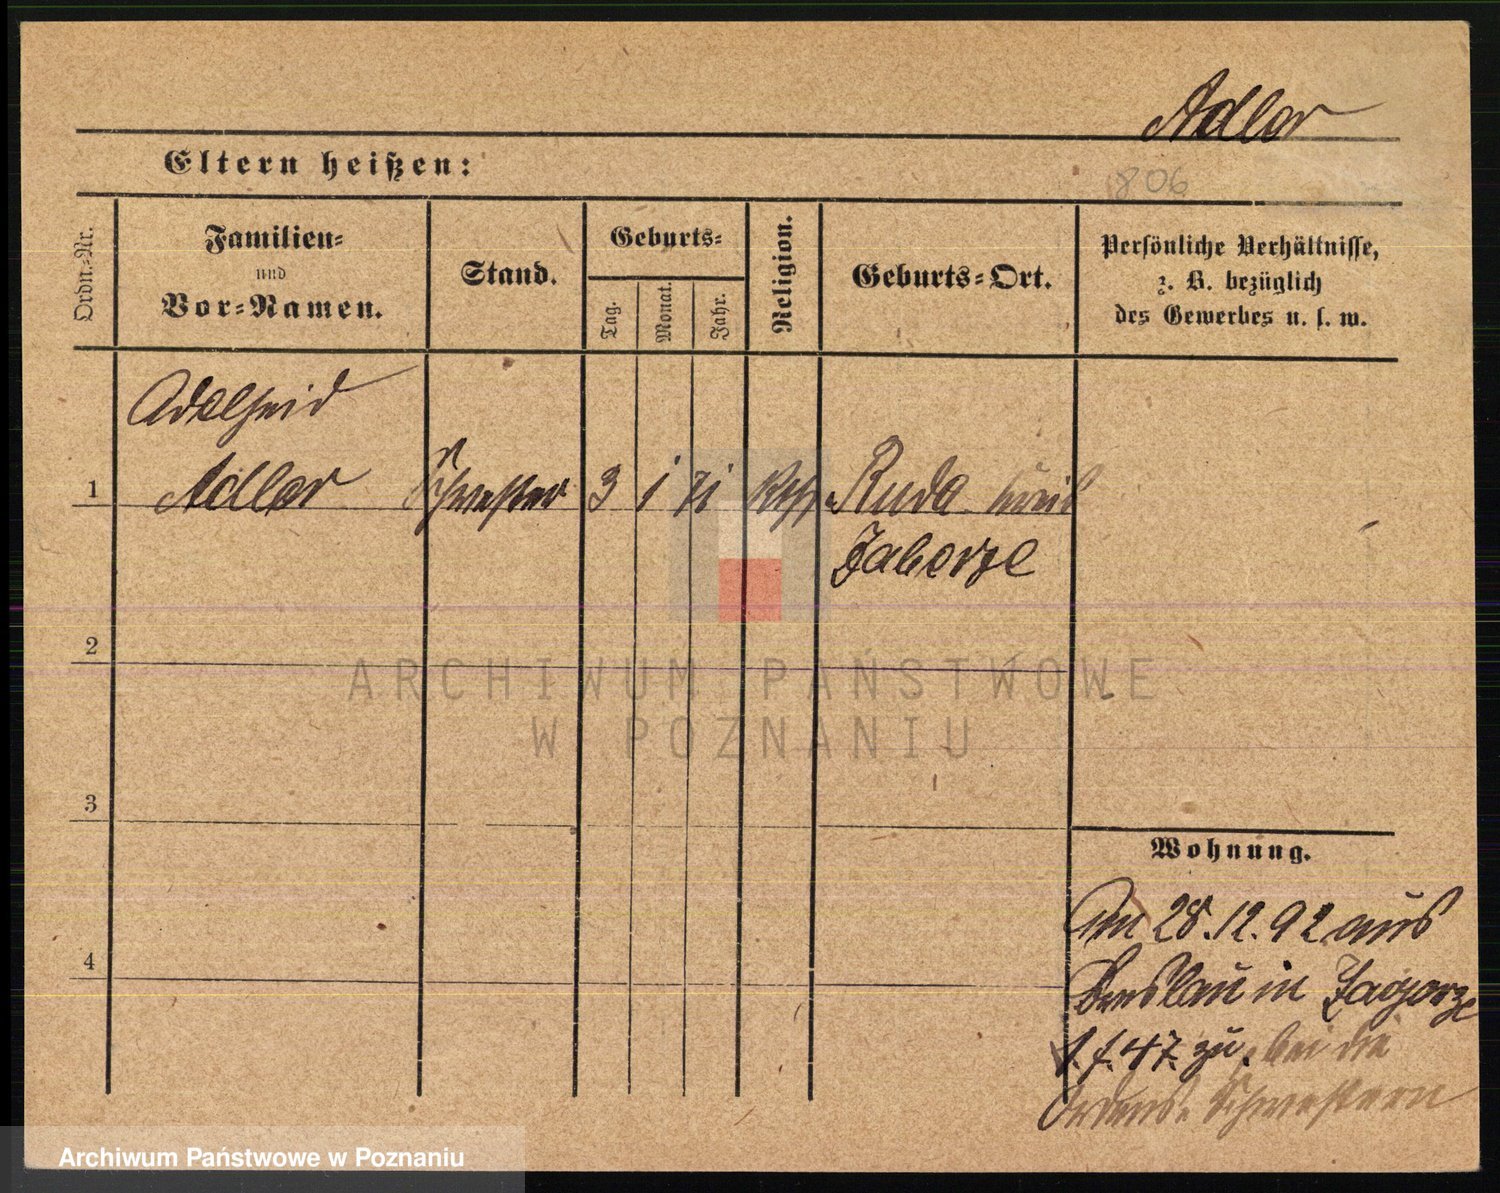 Adler
Eltern heißen:
806
Ordn.-Nr.
Familien-
und
Vor-Namen.
Stand.
Geburts-
Tag.
Monat.
Jahr.
Religion.
Geburts-Ort.
Persönliche Verhältnisse,
z. B. bezüglich
des Gewerbes u. s. w.
Adelheid
1 Adler Schwester 3 1 71 kth. Ruda Kreis
Zaborze
2
3
4
Wohnung.
Am 28.12.92 aus
Breslau in Zagorze
47 zu, bei die
Ordens-Schwestern
ARCHIWUM PAŃSTWOWE
W POZNANIU
Archiwum Państwowe w Poznaniu